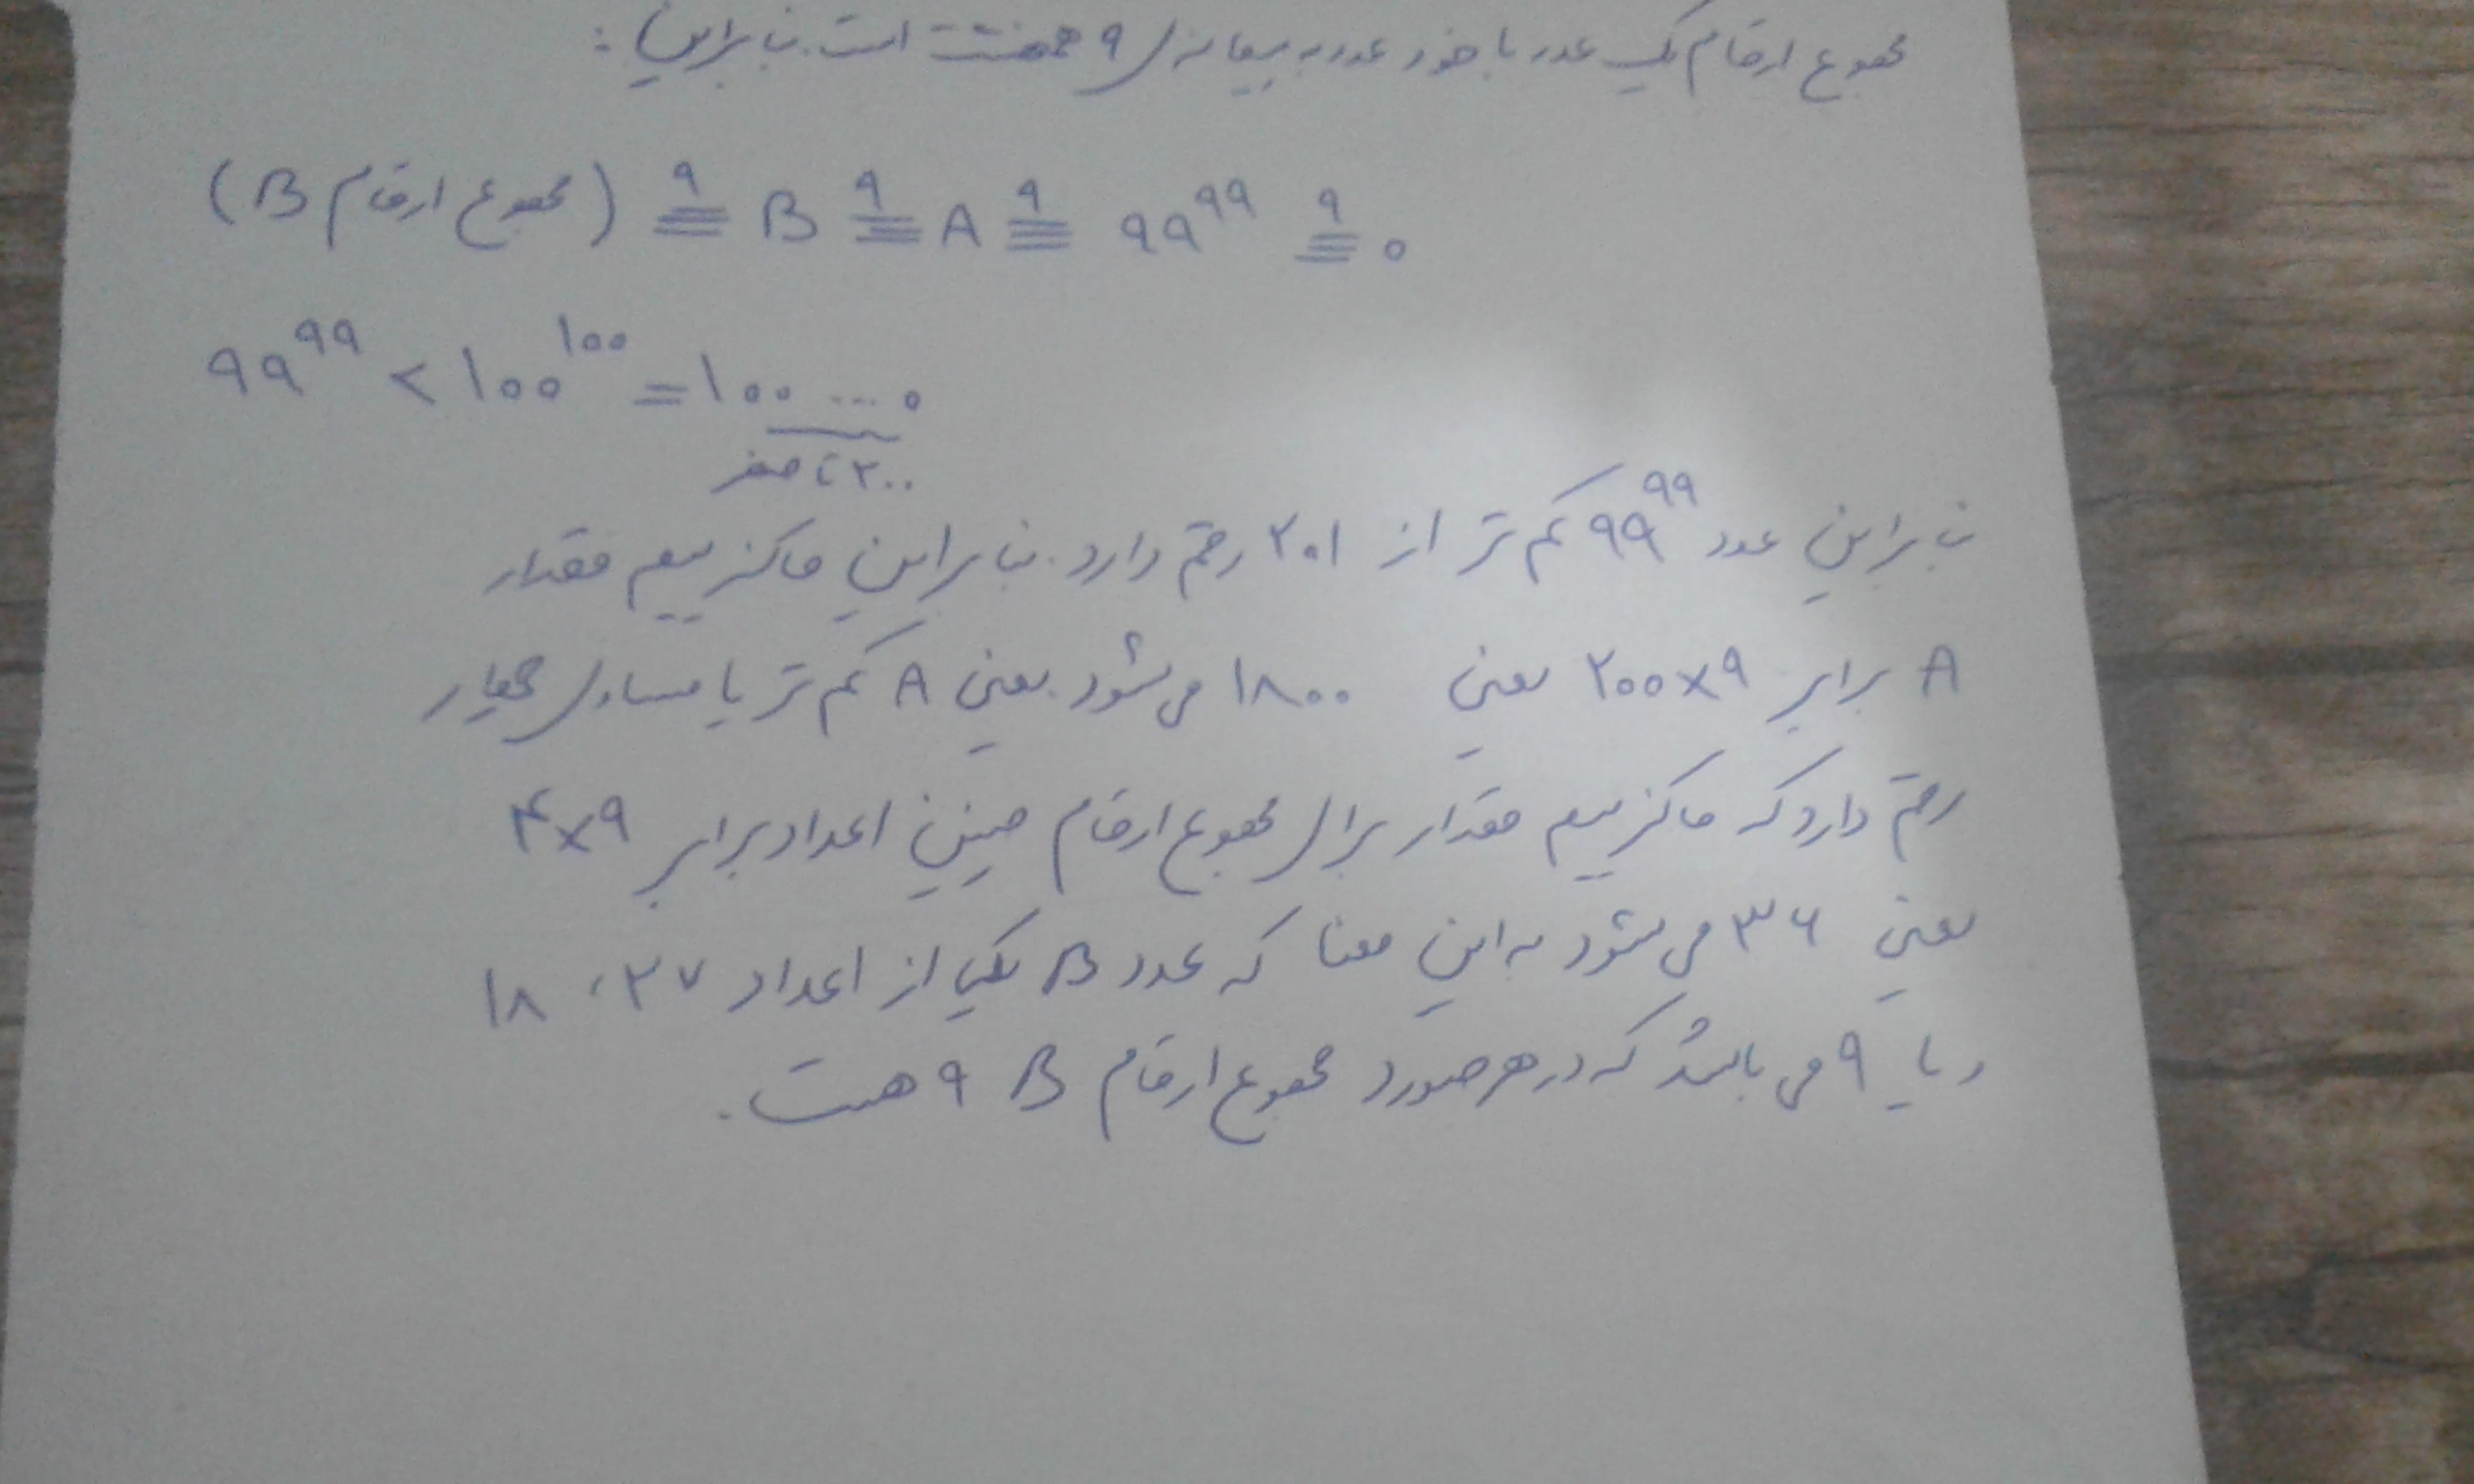 مجموع ارقام یک عدد با خود عدد به پیمانه‌ی ۹ همنهشت است. بنابراین :
(مجموع ارقام B) ≡۹ B ≡۹ A ≡۹ ۹۹^۹۹ ≡۹ ۰
۹۹^۹۹ < ۱۰۰^۱۰۰ = ۱۰۰ ... ۰
۲۰۰ تا صفر
بنابراین عدد ۹۹^۹۹ کم‌تر از ۲۰۱ رقم دارد. بنابراین ماکزیمم مقدار
A برابر ۲۰۰×۹ یعنی ۱۸۰۰ می‌شود. یعنی A کم‌تر یا مساوی چهار
رقم دارد که ماکزیمم مقدار برای مجموع ارقام چنین اعداد برابر ۴×۹
یعنی ۳۶ می‌شود به این معنا که عدد B یکی از اعداد ۲۷، ۱۸
و یا ۹ می‌باشد که در هر صورت مجموع ارقام B ۹ هست.